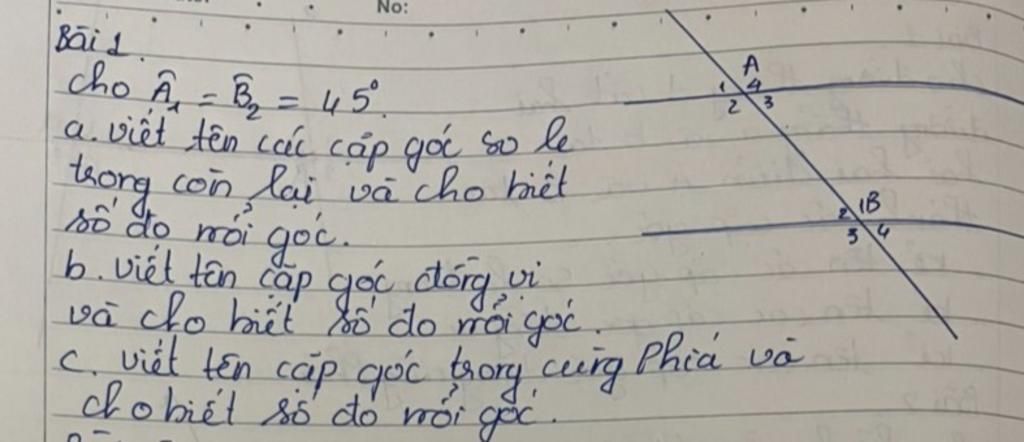 No:
Bài 1.
Cho Â₁ = B̂₂ = 45°.
a. viết tên các cặp góc so le
trong còn lại và cho biết
số đo mỗi góc.
b. viết tên cặp góc đồng vị
và cho biết số đo mỗi góc.
c. viết tên cặp góc trong cùng Phía và
cho biết số đo mỗi góc.
A
1 4
2 3
2 1B
3 4